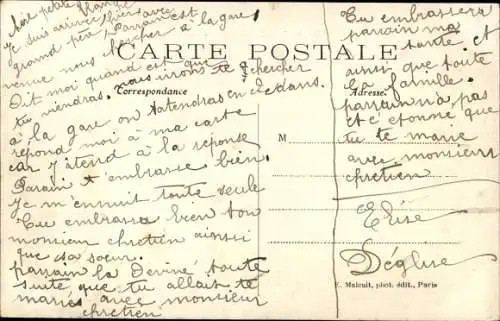 Ma petite
Je suis arrivée hier avec
grand père Parrain est
venue nous chercher à la gare
Dit moi quand est que
tu viendras. nous irons te chercher
à la gare on t'atendras en
répond moi à ma carte
car j'atend à la réponse
Parain t'embrasse bien.
Je m'ennuit toute seule
Tu embrassera bien ton
monsieur chretien ainsi
que sa soeur.
parrain la Deviné toute
suite que tu allait te
mariés avec monsieur
chretien
CARTE POSTALE
Correspondance
Adresse
M
Tu embrassera
parrain ma
tante et
ainsi que toute
la famille.
parrain n'a pas
et c'étonné que
tu te marie
avec monsieur
chretien
Elise
Déglise
E. Maleuit, phot. édit., Paris